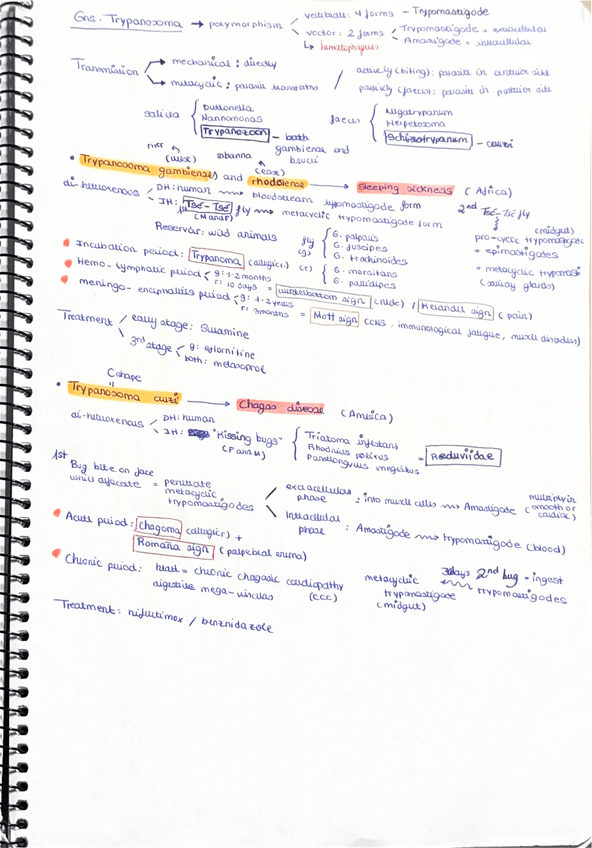 Gns. Trypanosoma → polymorphism
vertebrate: 4 forms - Trypomastigode
vector: 2 forms
Trypomastigode = extracellular
Amastigode = intracellular
↳ hematophagus
Transmission
mechanical: directly
metacyclic: parasite
/ actively (biting): parasite in anterior side
passively (faeces): parasite in posterior side
saliva
Duttonella
Nannomonas
Trypanozoon - both gambiense and brucei
faeces
Megatrypanum
Herpetosoma
Schizotrypanum - cruzi
river (west) sabanna (east)
• Trypanosoma gambiense(s) and rhodesiense → Sleeping sickness (Africa)
di-heteroxenous
DH: human ⟿ bloodstream trypomastigode form
IH: Tsé-Tsé fly ⟿ metacyclic trypomastigode form
1st (M and F)
2nd Tsé-Tsé fly
(midgut)
pro-cyclic trypomastigode
= epimastigodes
= metacyclic trypomasti
(salivary glands)
Reservoir: wild animals
fly (g)
G. palpalis
G. fuscipes
G. trachinoides
(r)
G. morsitans
G. pallidipes
Incubation period: Trypanoma (callug(ic).)
Hemo-lymphatic period
g: 1-2 months
r: 10 days
= Winterbottom sign (node) / Kerandel sign (pain)
meningo-encephalitis period
g: 1-2 years
r: 3 months
= Mott sign (CNS, immunological fatigue, muscle disorders)
Treatment
early stage: Suramine
3rd stage
g: eflornitine
both: melasoprol
C shape
• Trypanosoma cruzi → Chagas disease (America)
di-heteroxenous
DH: human
IH: "Kissing bugs" (F and M)
Triatoma infestans
Rhodnius prolixus
Panstrongylus megistus
= Reduviidae
1st Bug bite on face while defecate = penetrate metacyclic trypomastigodes
extracellular phase: into muscle cells ⟿ Amastigode (multiply in smooth or cardiac)
Intracellular phase: Amastigode ⟿ trypomastigode (blood)
Acute period: Chagoma (callug(ic).) +
Romaña sign (palpebral edema)
Chronic period: heart = chronic chagasic cardiopathy (CCC)
digestive mega-viscelas
metacyclic trypomastigode (midgut)
30 days
2nd bug = ingest trypomastigodes
Treatment: nifurtimox / benznidazole